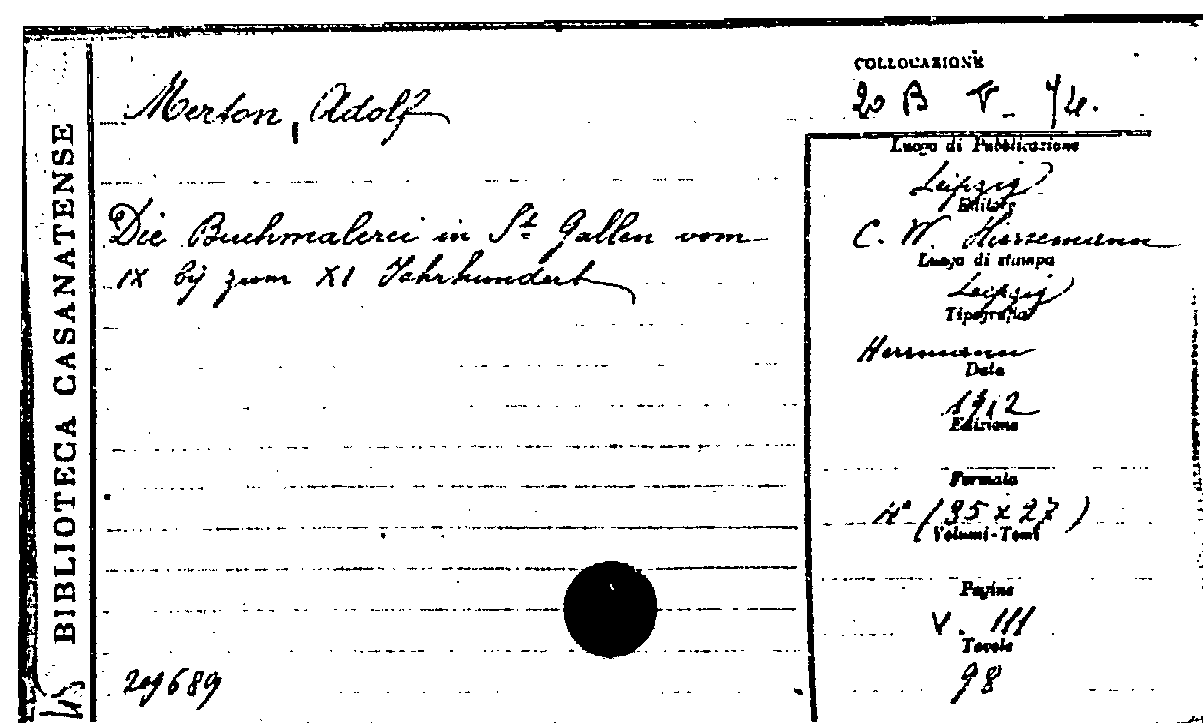 BIBLIOTECA CASANATENSE
Merton, Adolf
Die Buchmalerei in St Gallen vom
IX bij zum XI Jahrhundert
209689
COLLOCAZIONE
20 B V. 74.
Luogo di Pubblicazione
Leipzig
Editore
C. W. Hiersemann
Luogo di stampa
Leipzig
Tipografia
Herrmann
Data
1912
Edizione
Formato
4° (35 x 27)
Volumi-Tomi
Pagine
V. 111
Tavole
98